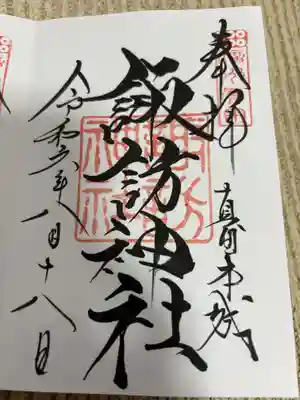 奉拝
諏訪神社
諏訪神社
令和六年八月十八日